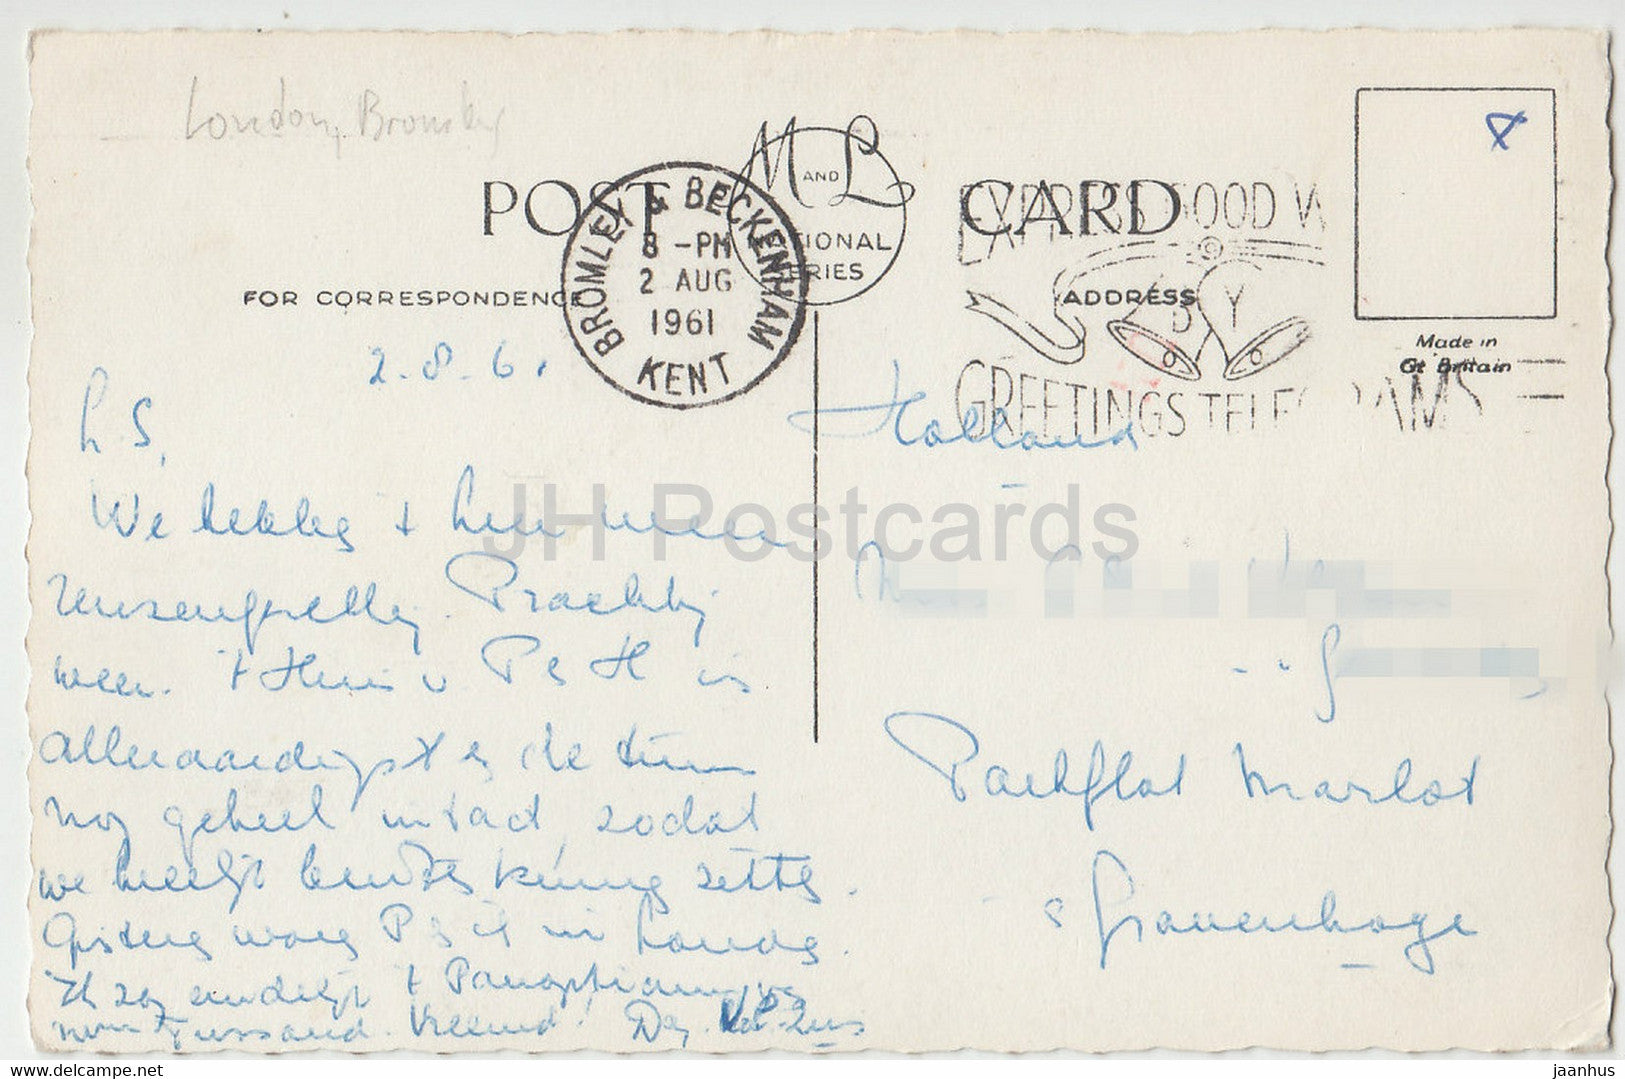 London, Bromley
POST CARD
M AND L
NATIONAL
SERIES
BROMLEY & BECKENHAM
8 - PM
2 AUG
1961
KENT
EXPRESS GOOD W
BY
GREETINGS TELEGRAMS
FOR CORRESPONDENCE
ADDRESS
Made in
Gt Britain
2-8-61
L S,
We hebben 't hier weer
reuzengezellig. Prachtig
weer. 't Huis v P & H is
alleraardigst en de tuin
nog geheel intact, zodat
we heerlijk buiten kunnen zitten.
Gisteren waren P & ik in Londen.
Ik zag eindelijk 't Panopticum v
Tussaud. Vreemd! Dag
Holland
Parkflat Marlot
s Gravenhage
JH Postcards
delcampe.net
jaanhus